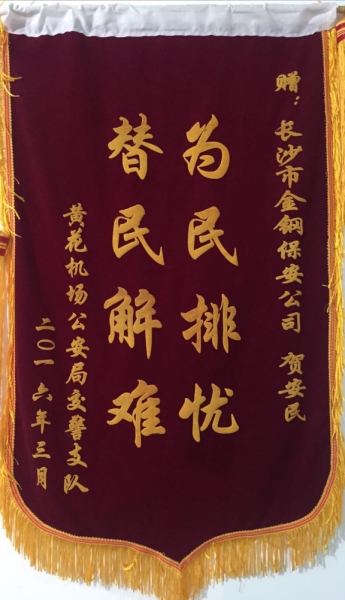 赠：长沙市金钢保安公司 贺安民
为民排忧
替民解难
黄花机场公安局交警支队
二〇一六年三月